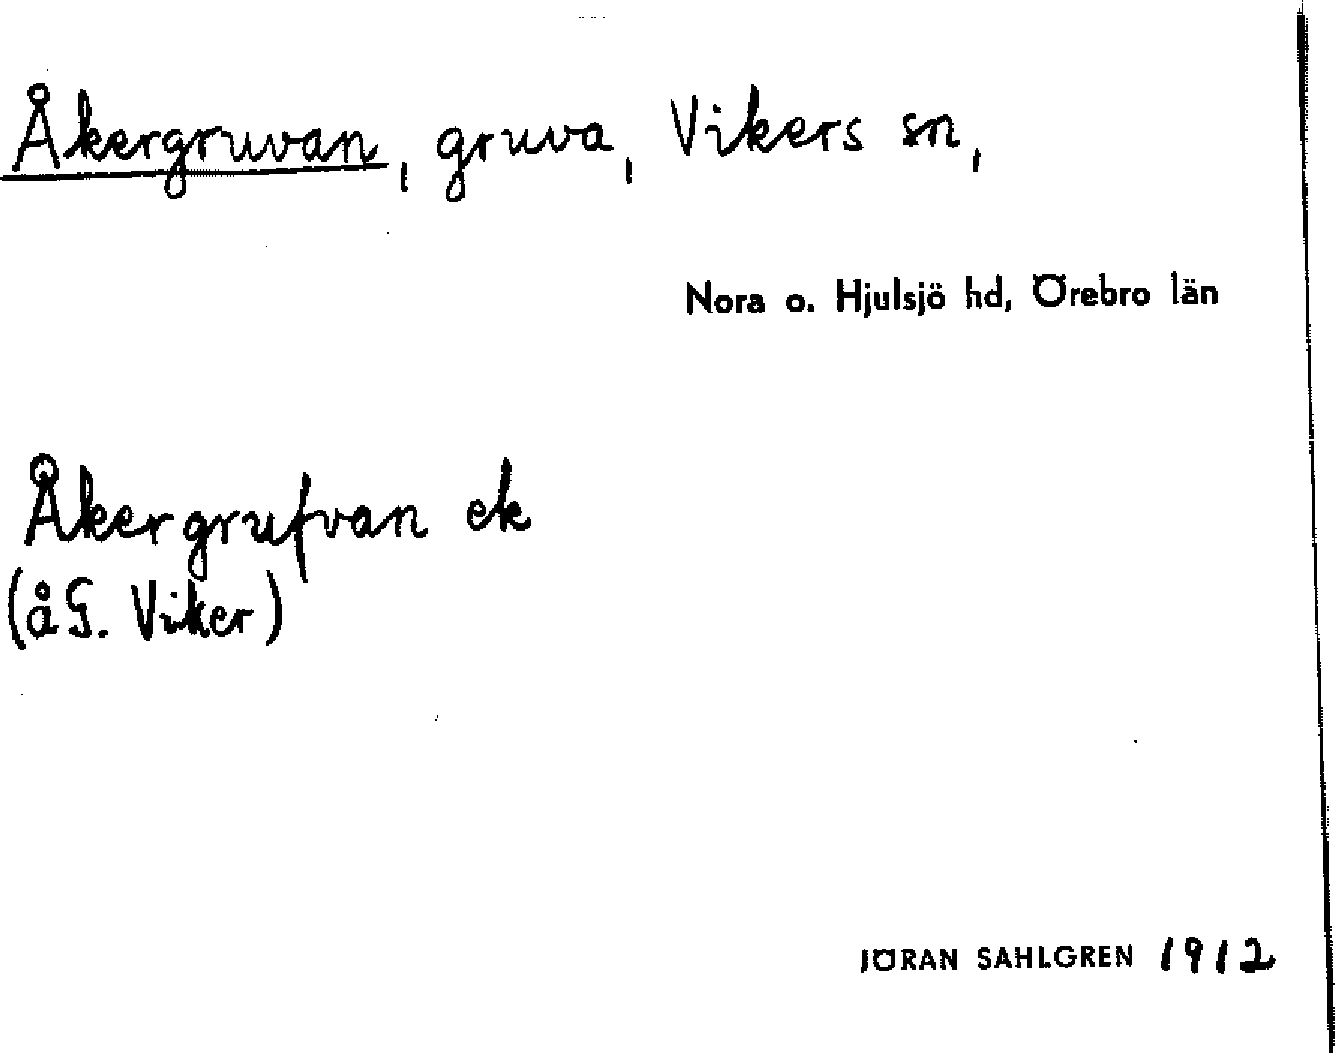 Åkergruvan, gruva, Vikers sn,
Nora o. Hjulsjö hd, Örebro län
Åkergrufvan ek
(åG. Viker)
JÖRAN SAHLGREN 1912